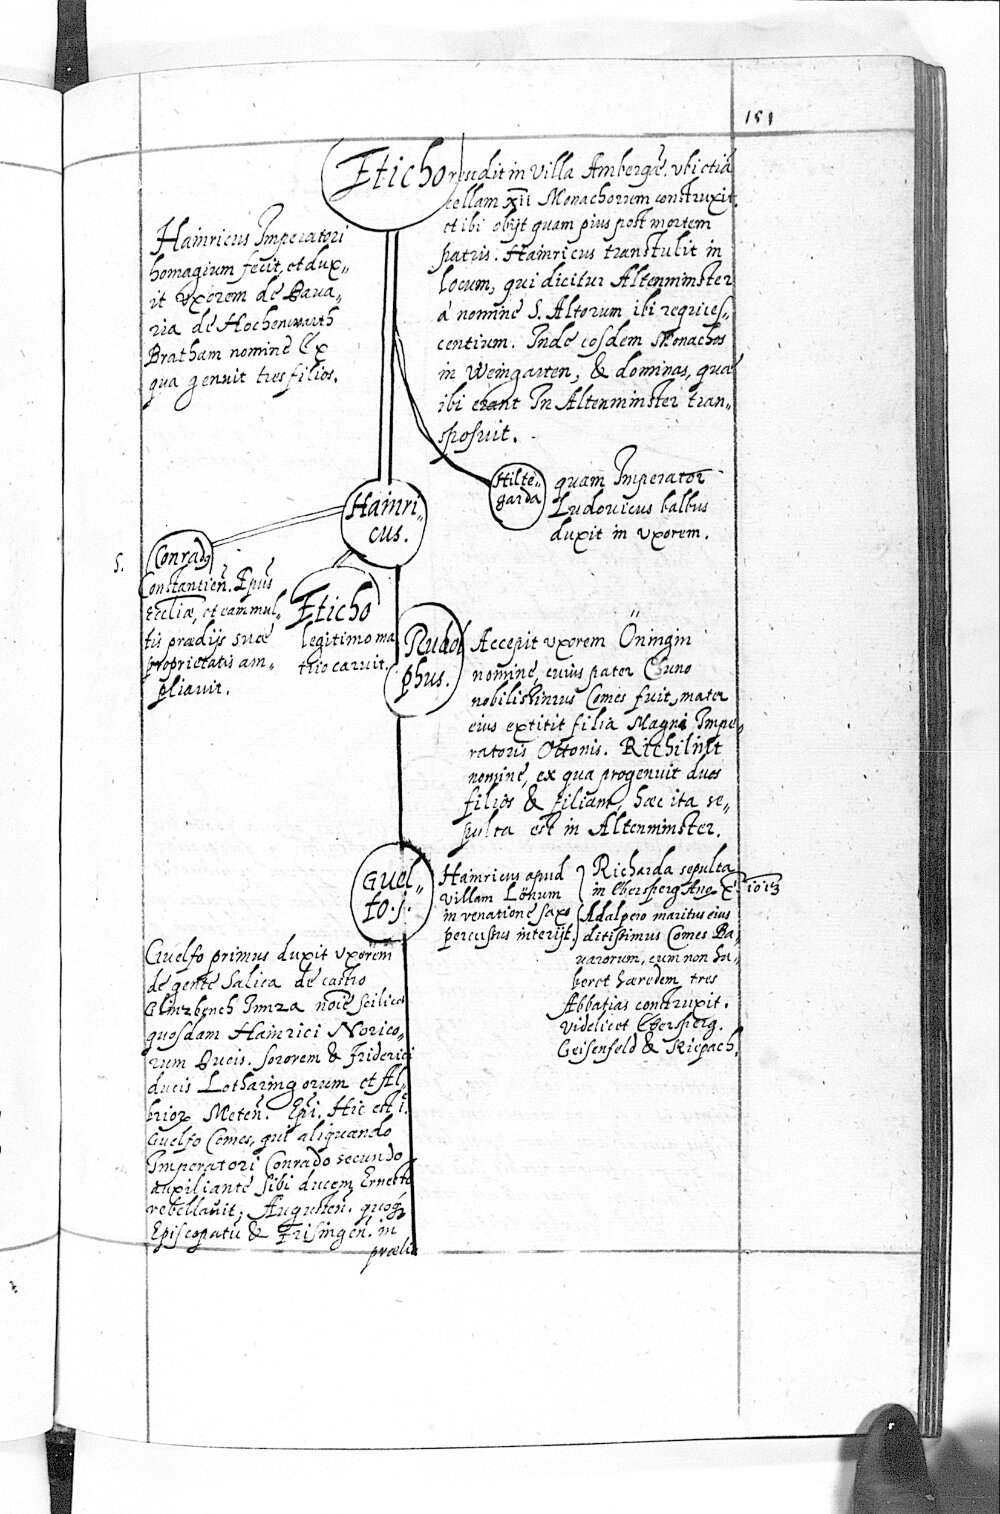 151
Eticho
resedit in Villa Ambergæ. vbi etiā
cellam xii Monachorum construxit.
et ibi obijt quam pius post mortem
patris. Hainricus transtulit in
locum, qui dicitur Altenminster
à nomine S. Altorum ibi reqvies-
centium. Inde eosdem Monachos
in Weingarten, & dominas, quæ
ibi erant In Altenminster tran-
sposuit.
Hainricus Imperatori
homagium fecit, et dux-
it vxorem de Baua-
ria de Hochenwarth
Bratham nomine Ex
qua genuit tres filios.
Hilte-
garda
quam Imperator
Ludouicus balbus
duxit in vxorem.
Hainri-
cus.
5.
Conrad9
Constantien̄. Epūs
Eccliæ, et eam mul-
tis prædijs suæ
proprietatis am-
pliauit.
Eticho
legitimo ma
trio caruit.
Rudol
phus.
Accepit vxorem Öningin
nomine, cuius pater Chuno
nobilissimus Comes fuit, mater
eius extitit filia Magni Impe-
ratoris Ottonis. Richilint
nomine, ex qua progenuit duos
filios & filiam, hæc ita se-
pulta est in Altenminster.
Guel-
fo. j.
Hainricus apud
villam Löhum
in venatione saxo
percussus interijt.
Richarda sepulta
in Ebersperg Ano X 1013
Adalpero maritus eius
ditissimus Comes Ba-
uarorum, cum non ha-
beret hæredem tres
Abbatias construxit.
videlicet Ebersperg.
Geisenfeld & Kiepach.
Guelfo primus duxit vxorem
de gente Salica de castro
Glinzbench Imza noīe scilicet
quosdam Hainrici Norico-
rum Ducis. sororem & Friderici
ducis Lotharingorum et Al-
brior Meten̄. Epi. Hic est i.
Guelfo Comes, qui aliquando
Imperatori Conrado secundo
auxiliante sibi ducem Ernesto
rebellauit; Augusten̄. quoq3
Episcopatū & Frisingen̄. in
prælio